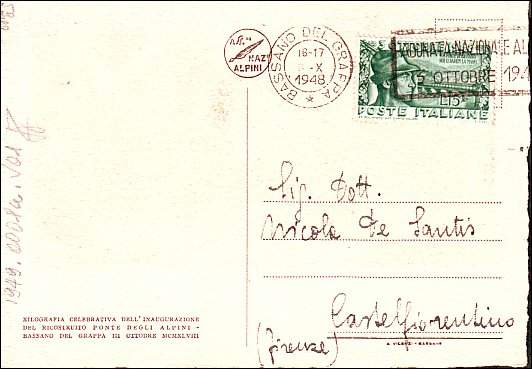 NAZ
ALPINI
BASSANO DEL GRAPPA
16-17
X
1948
ADUNATA NAZIONALE AL
3 OTTOBRE 194
L15
POSTE ITALIANE
Sig. Dott.
Nicola De Santis
Castelfiorentino
(Firenze)
XILOGRAFIA CELEBRATIVA DELL'INAUGURAZIONE
DEL RICOSTRUITO PONTE DEGLI ALPINI -
BASSANO DEL GRAPPA III OTTOBRE MCMXLVIII
1949.